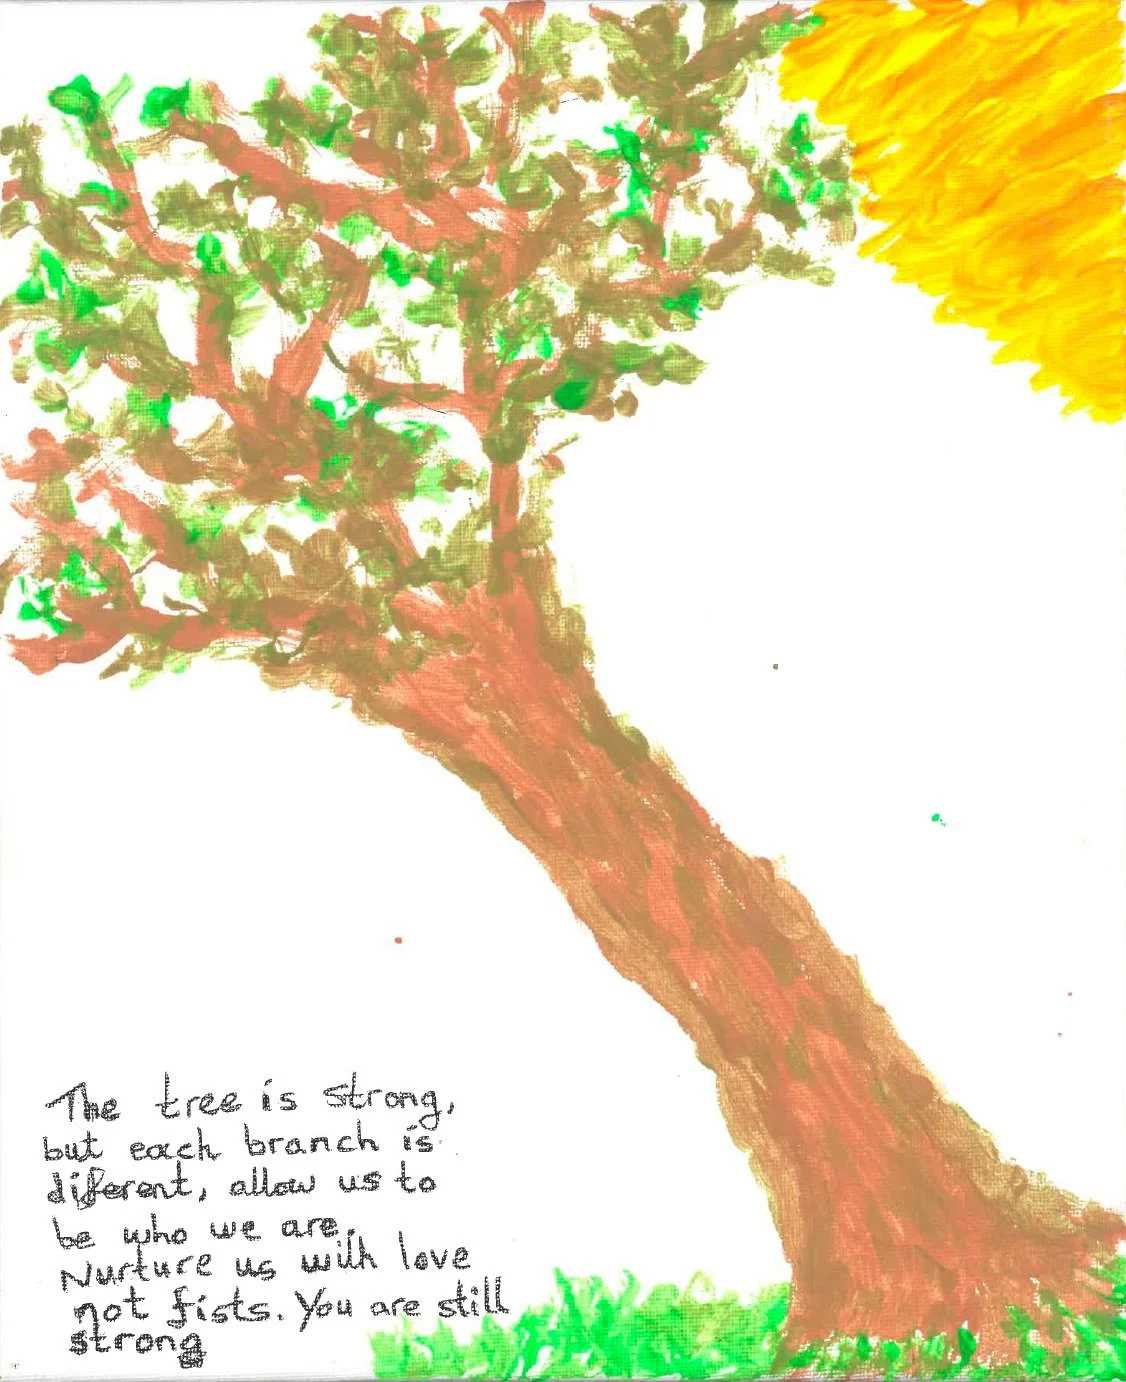 The tree is strong,
but each branch is
diferent, allow us to
be who we are.
Nurture us with love
not fists. You are still
strong